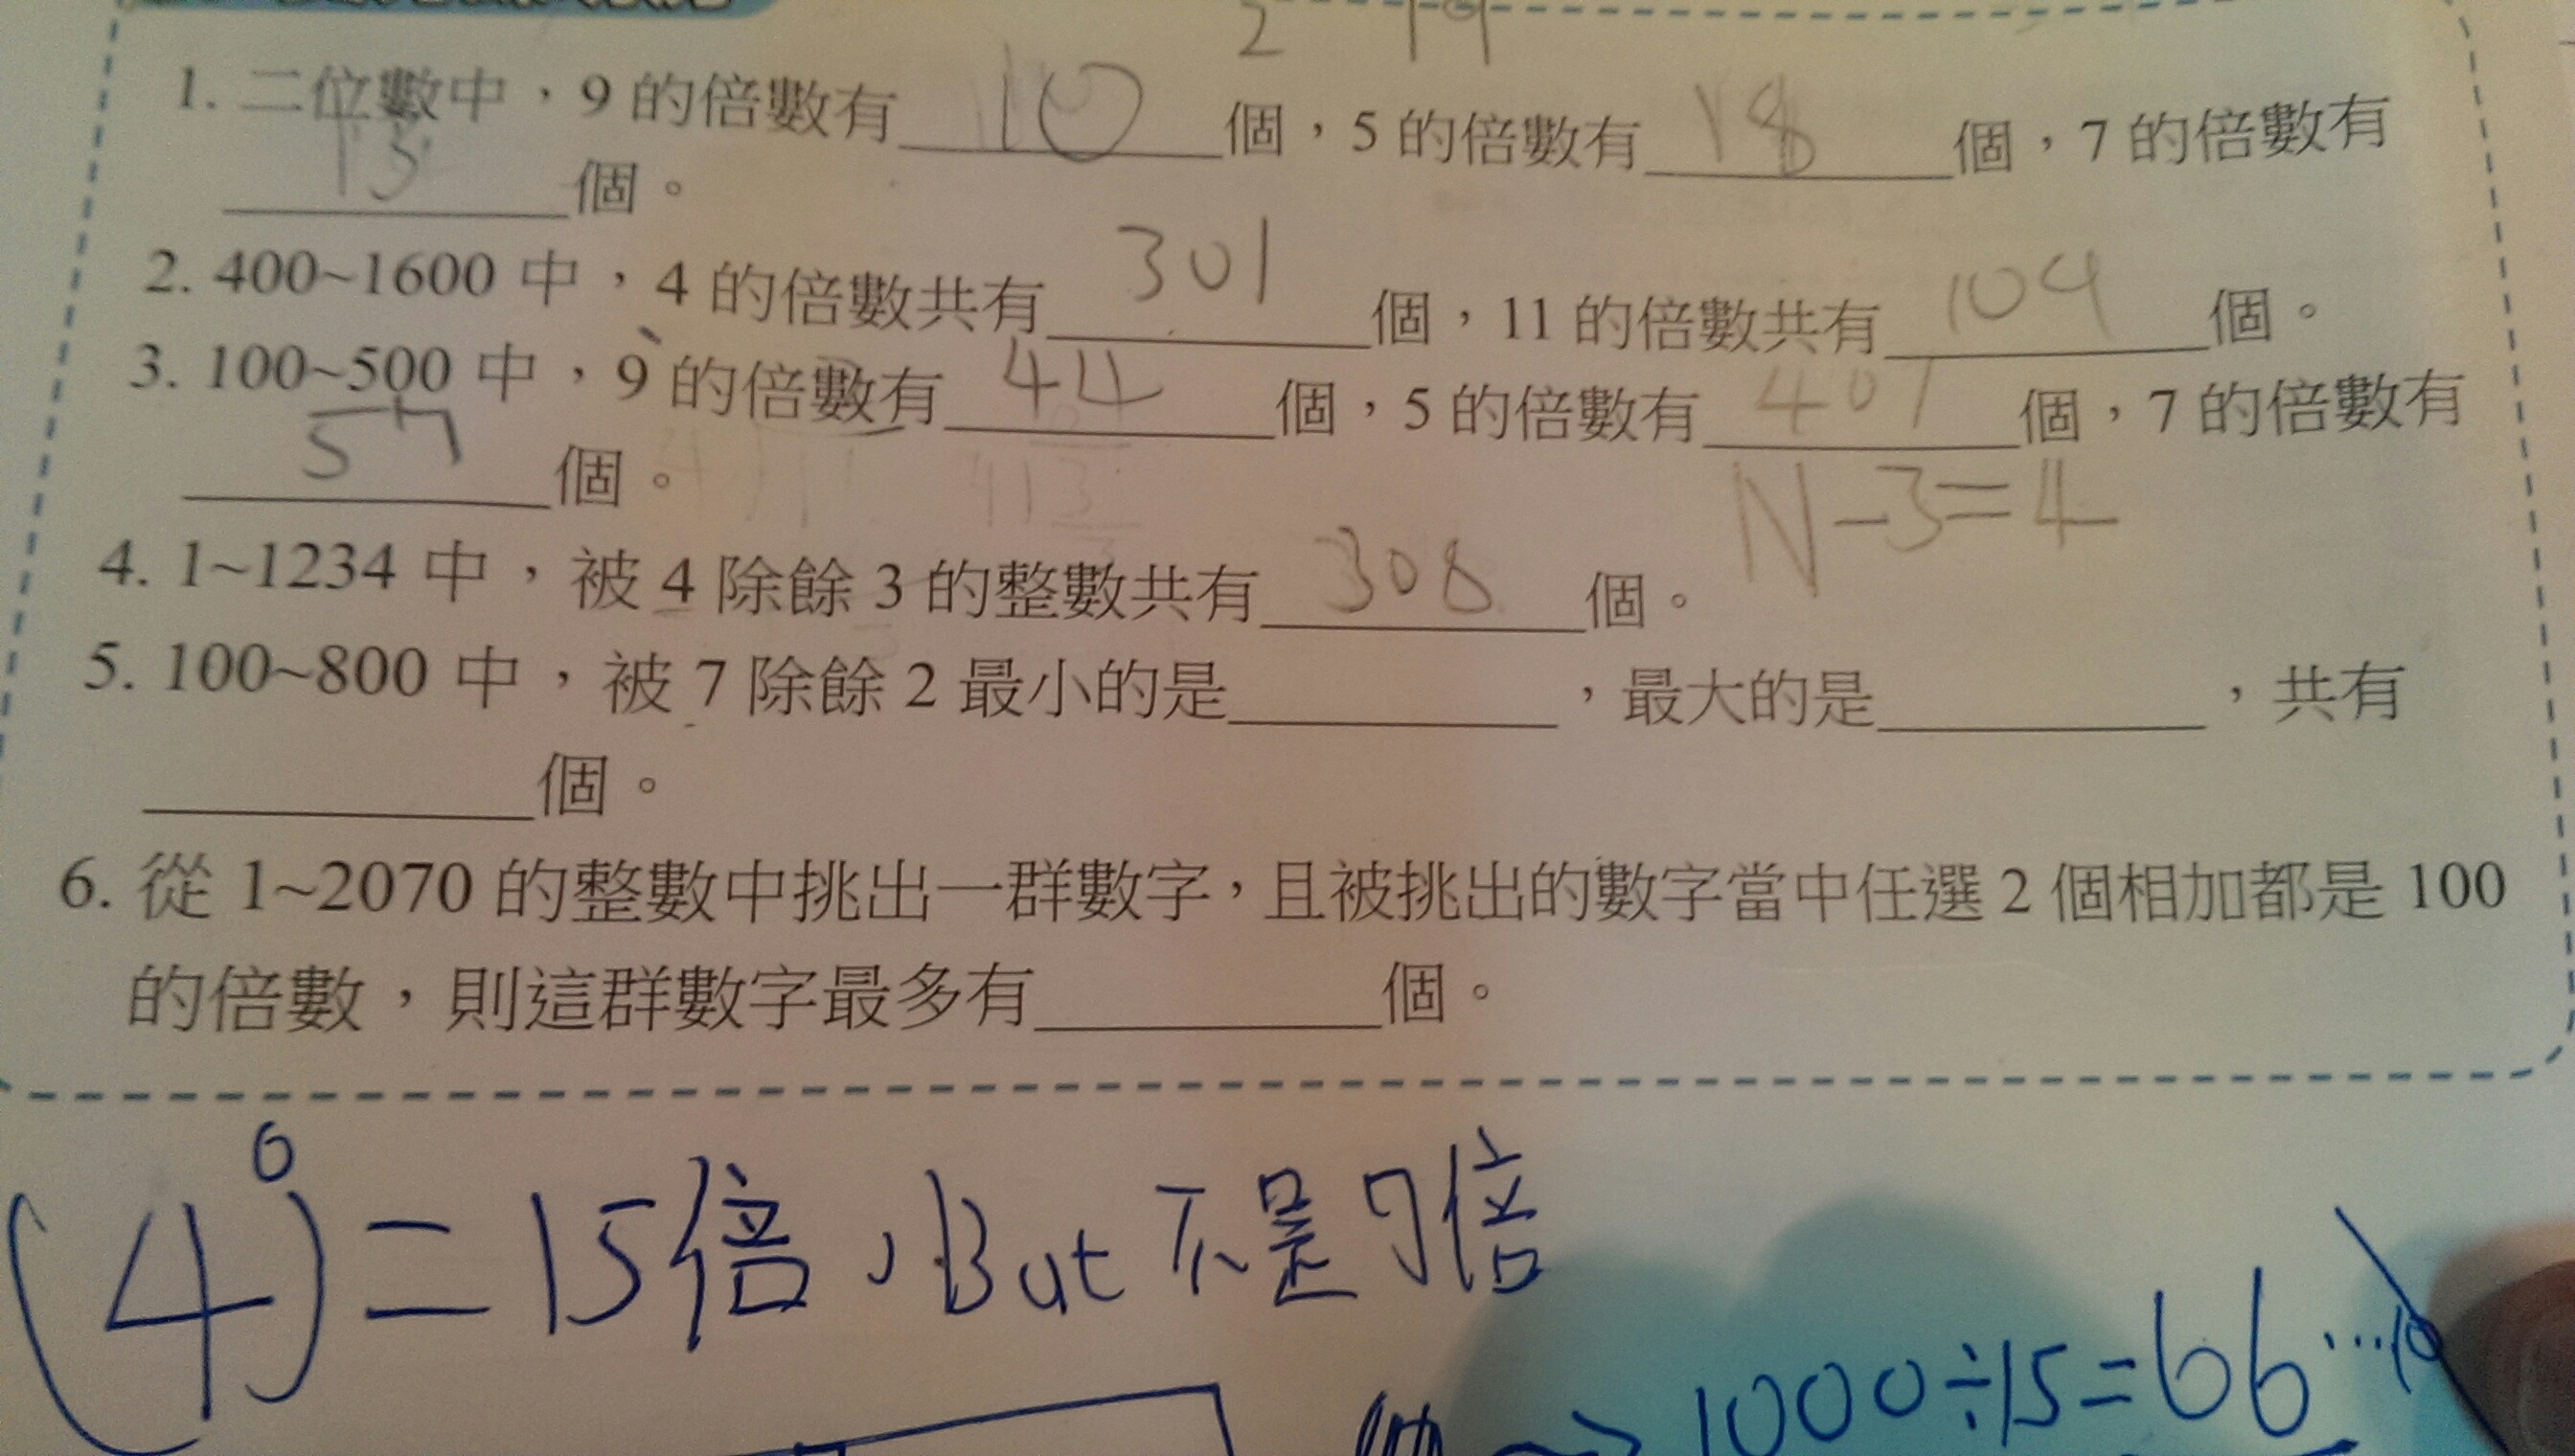 2 19
1. 二位數中，9 的倍數有 10 個，5 的倍數有 18 個，7 的倍數有
13 個。
2. 400~1600 中，4 的倍數共有 301 個，11 的倍數共有 109 個。
3. 100~500 中，9 的倍數有 44 個，5 的倍數有 401 個，7 的倍數有
57 個。
N-3=4
4. 1~1234 中，被 4 除餘 3 的整數共有 308 個。
5. 100~800 中，被 7 除餘 2 最小的是 ，最大的是 ，共有
個。
6. 從 1~2070 的整數中挑出一群數字，且被挑出的數字當中任選 2 個相加都是 100
的倍數，則這群數字最多有 個。
(4)=15倍，But 不是7倍
1000÷15=66…10